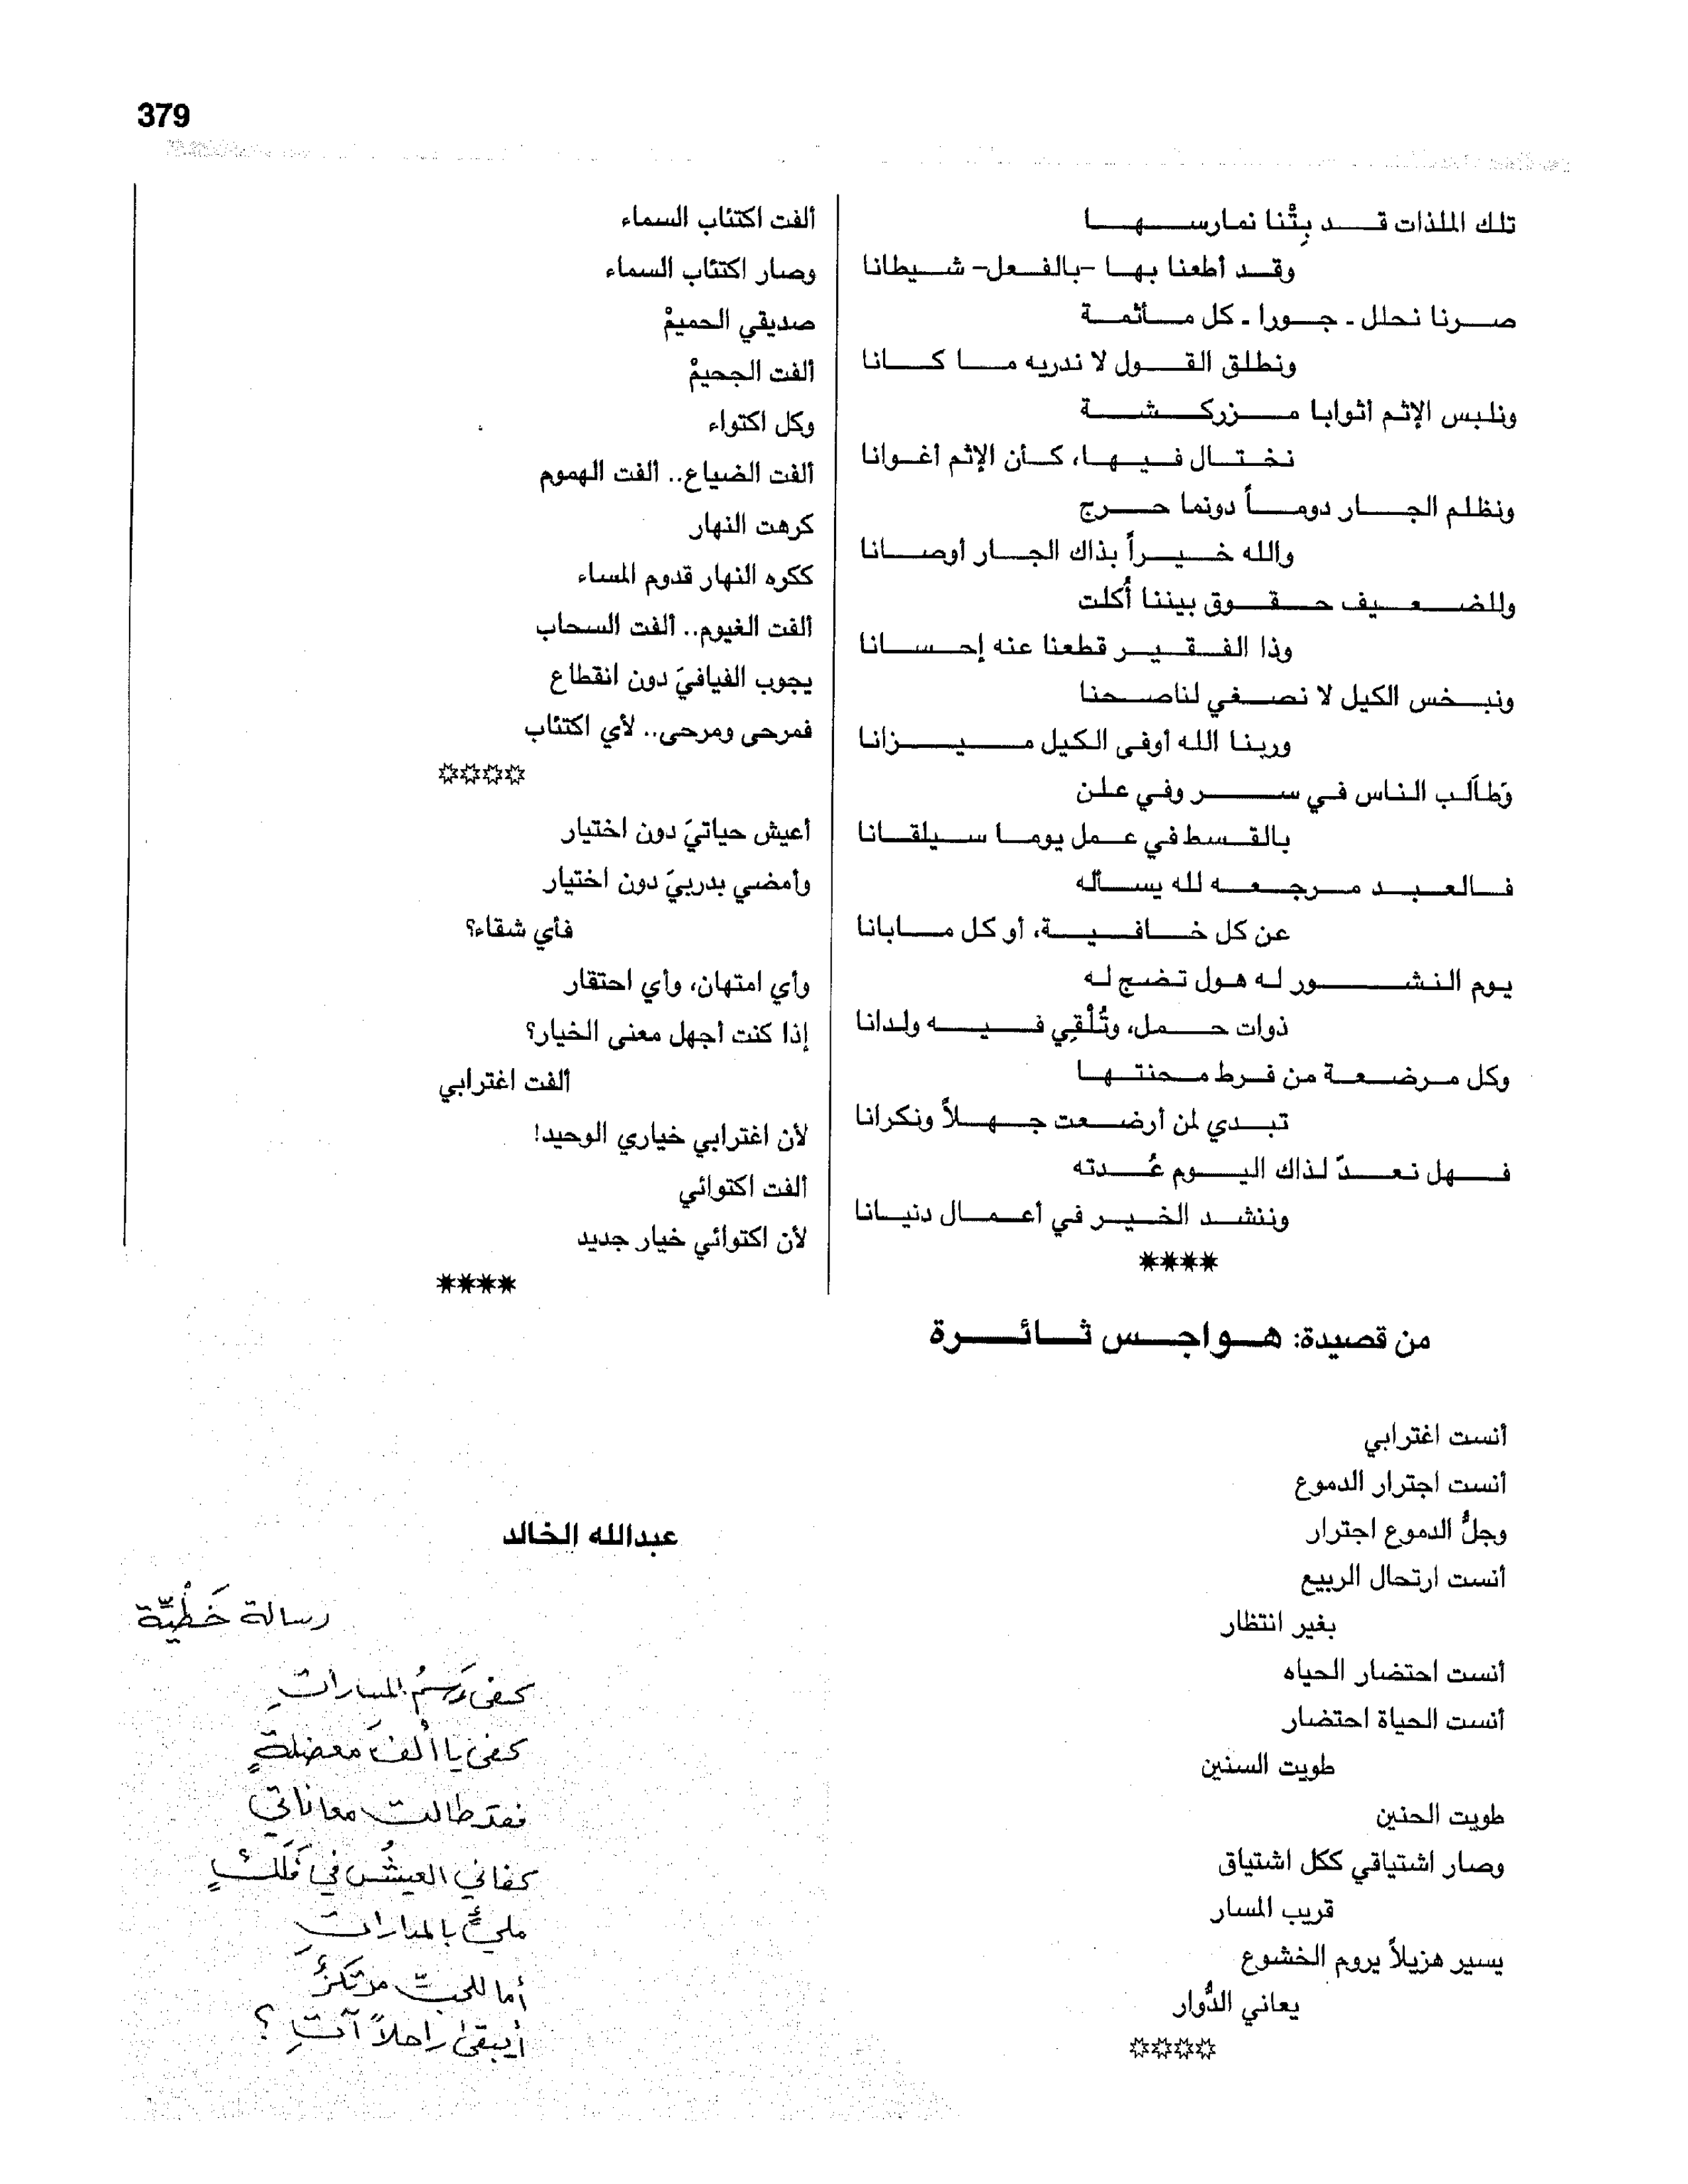 379
تلك الملذات قد بِتْنا نمارسها
وقد أطعنا بها -بالفعل- شيطانا
صرنا نحلل - جورا - كل مأثمة
ونطلق القول لا ندريه ما كانا
ونلبس الإثم أثوابا مزركشة
نختال فيها، كأن الإثم أغوانا
ونظلم الجار دوماً دونما حرج
والله خيراً بذاك الجار أوصانا
وللضعيف حقوق بيننا أُكلت
وذا الفقير قطعنا عنه إحسانا
ونبخس الكيل لا نصغي لناصحنا
وربنا الله أوفى الكيل ميزانا
وَطالَب الناس في سر وفي علن
بالقسط في عمل يوما سيلقانا
فالعبد مرجعه لله يسأله
عن كل خافية، أو كل مابانا
يوم النشور له هول تضج له
ذوات حمل، وتُلْقِي فيه ولدانا
وكل مرضعة من فرط محنتها
تبدي لمن أرضعت جهلاً ونكرانا
فهل نعدّ لذاك اليوم عُدته
وننشد الخير في أعمال دنيانا
****
من قصيدة: هواجس ثائرة
أنست اغترابي
أنست اجترار الدموع
وجلُّ الدموع اجترار
أنست ارتحال الربيع
بغير انتظار
أنست احتضار الحياه
أنست الحياة احتضار
طويت السنين
طويت الحنين
وصار اشتياقي ككل اشتياق
قريب المسار
يسير هزيلاً يروم الخشوع
يعاني الدُّوار
****
ألفت اكتئاب السماء
وصار اكتئاب السماء
صديقي الحميمْ
ألفت الجحيمْ
وكل اكتواء
ألفت الضياع.. ألفت الهموم
كرهت النهار
ككره النهار قدوم المساء
ألفت الغيوم.. ألفت السحاب
يجوب الفيافيَ دون انقطاع
فمرحى ومرحى.. لأي اكتئاب
****
أعيش حياتيَ دون اختيار
وأمضي بدربيَ دون اختيار
فأي شقاء؟
وأي امتهان، وأي احتقار
إذا كنت أجهل معنى الخيار؟
ألفت اغترابي
لأن اغترابي خياري الوحيد!
ألفت اكتوائي
لأن اكتوائي خيار جديد
****
عبدالله الخالد
رسالة خَطْيّة
كفى رَسمُ المسارات
كفى يا ألفَ معضلةٍ
فقد طالت معاناتي
كفاني العيشُ في فَلَكٍ
مليءٍ بالمداراتِ
أما للحبّ مرتكزٌ
أيبقى راحلاً آتِ ؟